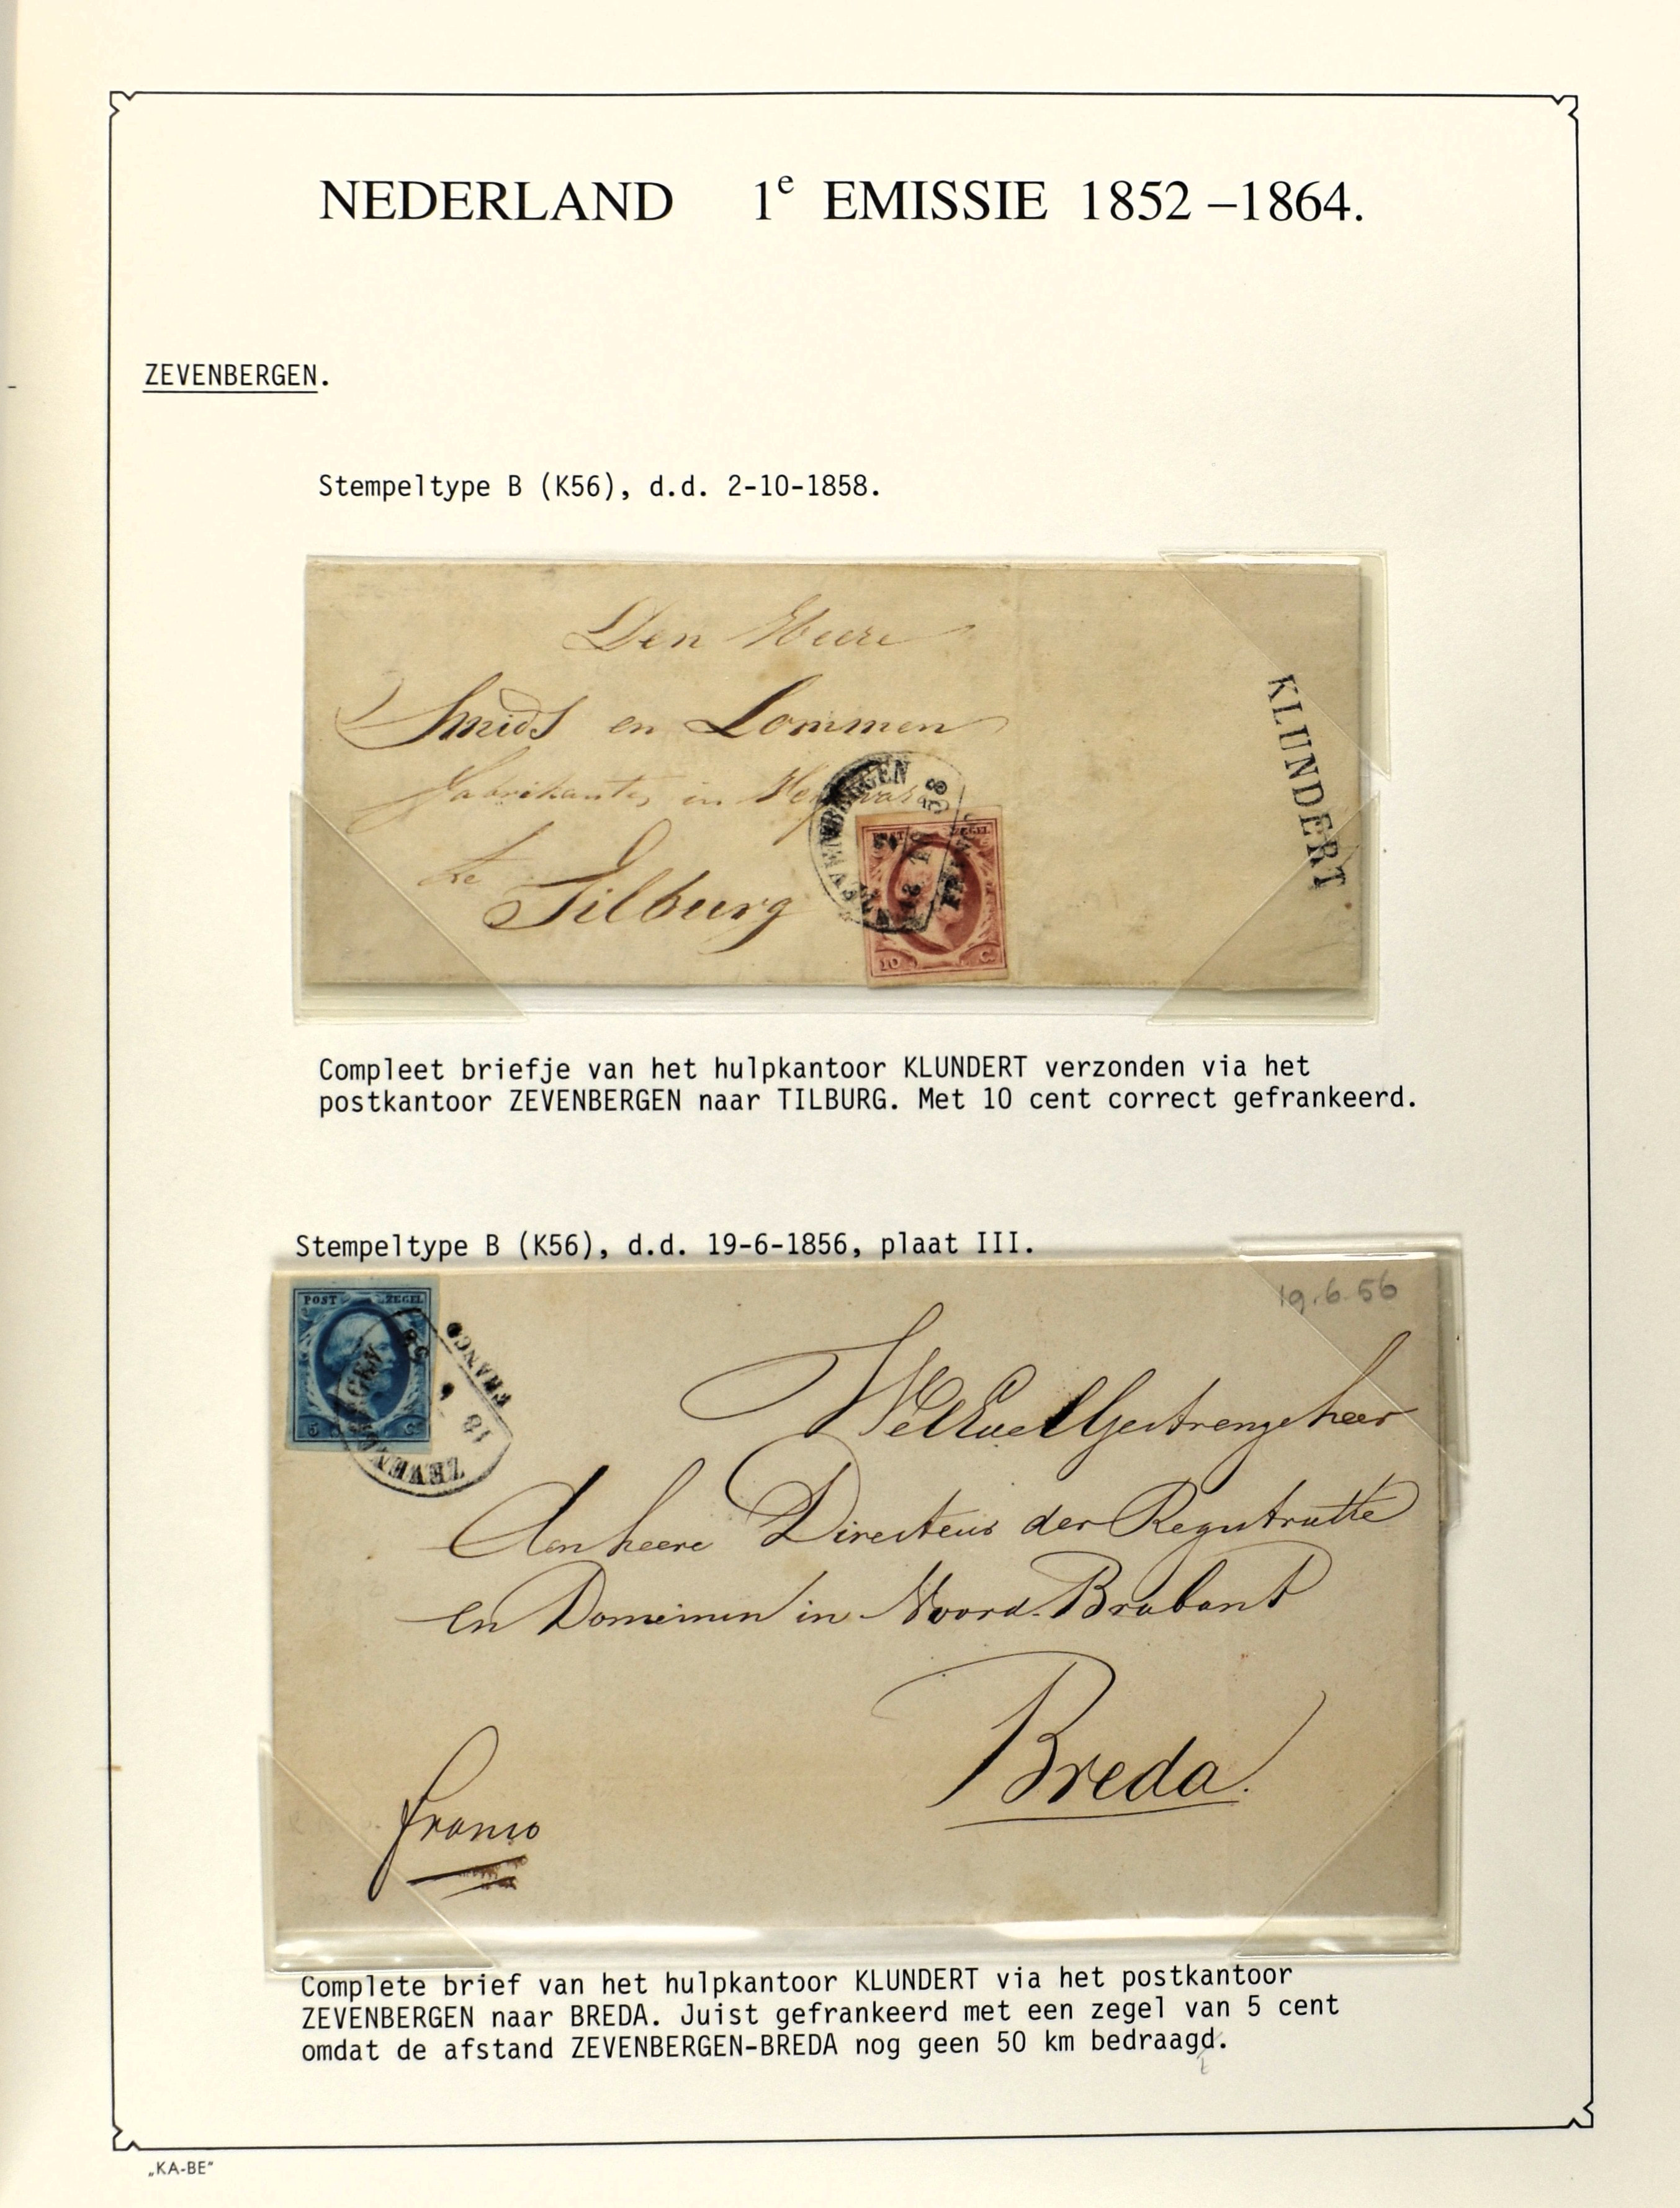 NEDERLAND 1e EMISSIE 1852 –1864.
ZEVENBERGEN.
Stempeltype B (K56), d.d. 2-10-1858.
Den Heere
Smids en Lommen
Fabrikanten in
te
Tilburg
ZEVENBERGEN
58
FRANCO
POST ZEGEL
10 C.
KLUNDERT
Compleet briefje van het hulpkantoor KLUNDERT verzonden via het
postkantoor ZEVENBERGEN naar TILBURG. Met 10 cent correct gefrankeerd.
Stempeltype B (K56), d.d. 19-6-1856, plaat III.
POST ZEGEL
5 C.
ZEVENBERGEN
FRANCO
19.6.56
WelEdelGestrenge heer
Aan heere Directeur der Registratie
en Domeinen in Noord-Brabant
Breda.
franco
Complete brief van het hulpkantoor KLUNDERT via het postkantoor
ZEVENBERGEN naar BREDA. Juist gefrankeerd met een zegel van 5 cent
omdat de afstand ZEVENBERGEN-BREDA nog geen 50 km bedraagd.
t
„KA-BE”